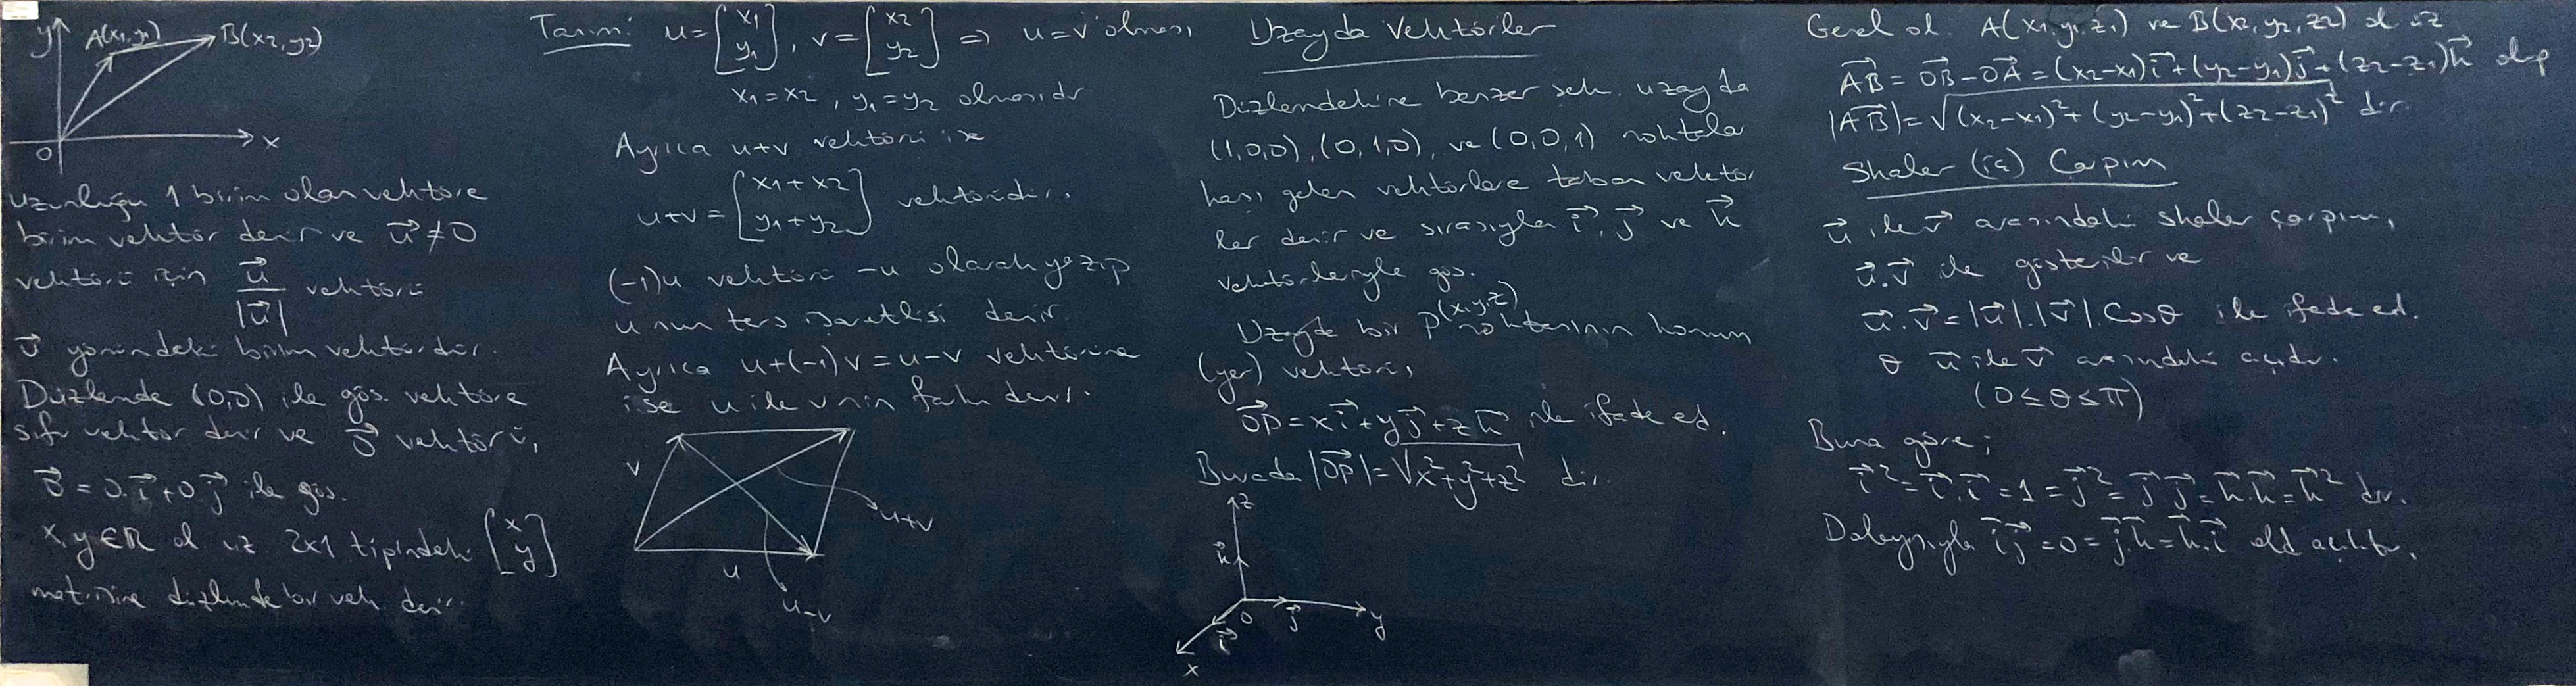 y
A(x1,y1)
B(x2,y2)
O
x
uzunluğu 1 birim olan vektöre
birim vektör denir ve u⃗ ≠ 0
vektörü için u⃗/|u⃗| vektörü
u⃗ yönündeki birim vektördür.
Düzlemde (0,0) ile gös. vektöre
sıfır vektör denir ve 0⃗ vektörü,
0⃗ = 0.i⃗ + 0.j⃗ ile gös.
x,y∈R ol. üz. 2x1 tipindeki [x y]
matrisine düzlemde bir vek. denir.
Tanım: u = [x1 y1], v = [x2 y2] ⇒ u=v olması
x1=x2, y1=y2 olmasıdır
Ayrıca u+v vektörü ise
u+v = [x1+x2 y1+y2] vektörüdür.
(-1)u vektörü -u olarak yazıp
u nun ters işaretlisi denir.
Ayrıca u+(-1)v = u-v vektörüne
ise u ile v nin farkı denir.
v
u+v
u
u-v
Uzayda Vektörler
Düzlemdekine benzer şek. uzayda
(1,0,0), (0,1,0), ve (0,0,1) nokta
karşı gelen vektörlere taban vektör
ler denir ve sırasıyla i⃗, j⃗ ve k⃗
vektörleriyle gös.
Uzayda bir P(x,y,z) noktasının konum
(yer) vektörü,
OP⃗ = xi⃗ + yj⃗ + zk⃗ ile ifade ed.
Burada |OP⃗| = √x²+y²+z² dir.
z
k⃗
O
j⃗
y
i⃗
x
Genel ol. A(x1,y1,z1) ve B(x2,y2,z2) ol. üz
AB⃗ = OB⃗ - OA⃗ = (x2-x1)i⃗ + (y2-y1)j⃗ + (z2-z1)k⃗ olup
|AB⃗| = √(x2-x1)² + (y2-y1)² + (z2-z1)² dir.
Skaler (iç) Çarpım
u⃗ ile v⃗ arasındaki skaler çarpım,
u⃗.v⃗ ile gösterilir ve
u⃗.v⃗ = |u⃗|.|v⃗|.Cosθ ile ifade ed.
θ u⃗ ile v⃗ arasındaki açıdır.
(0≤θ≤π)
Buna göre;
i⃗² = i⃗.i⃗ = 1 = j⃗² = j⃗.j⃗ = k⃗.k⃗ = k⃗² dir.
Dolayısıyla i⃗.j⃗ = 0 = j⃗.k⃗ = k⃗.i⃗ old açıktır.